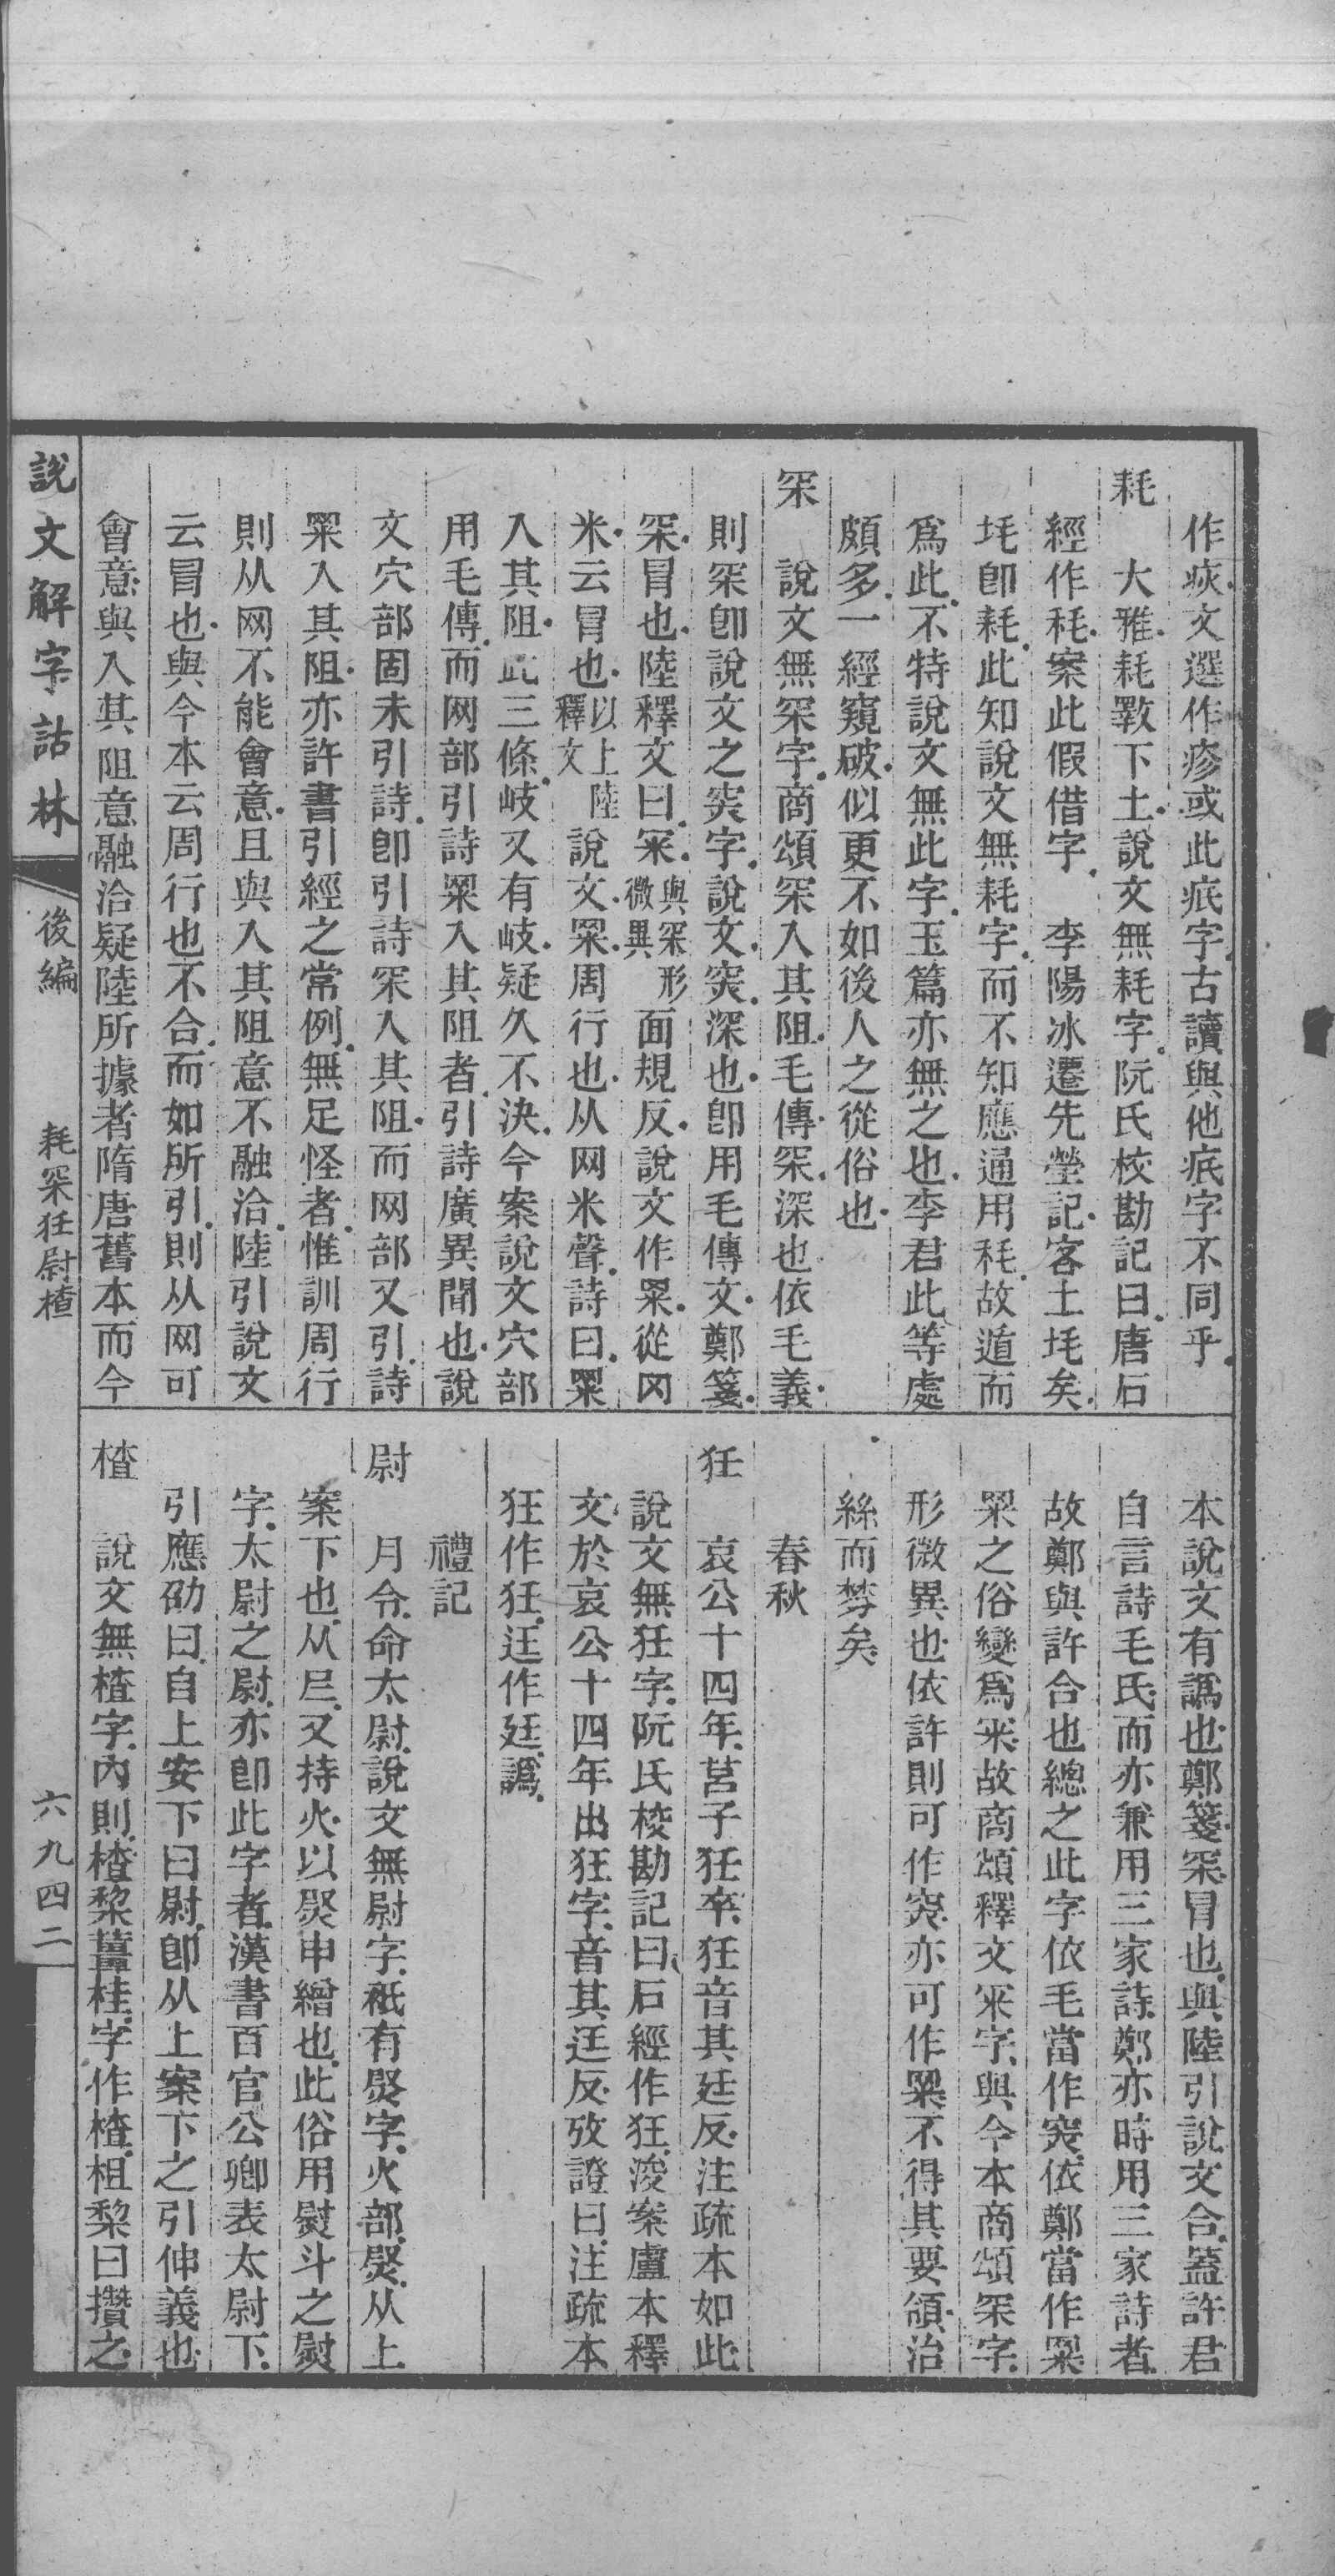 作疢文選作疹或此疷字古讀與他疷字不同乎
耗
大雅耗斁下土說文無耗字阮氏校勘記曰唐石
經作秏案此假借字　李陽冰遷先塋記客土㲌矣
㲌卽耗此知說文無耗字而不知應通用秏故遁而
爲此不特說文無此字玉篇亦無之也李君此等處
頗多一經窺破似更不如後人之從俗也
罙
說文無罙字商頌罙入其阻毛傳罙深也依毛義
則罙卽說文之突字說文突深也卽用毛傳文鄭箋
罙冒也陸釋文曰冞與罙形微異面規反說文作䍘從冈
米云冒也以上陸釋文說文䍘周行也从网米聲詩曰䍘
入其阻此三條歧又有歧疑久不決今案說文穴部
用毛傳而网部引詩䍘入其阻者引詩廣異聞也說
文穴部固未引詩卽引詩罙入其阻而网部又引詩
䍘入其阻亦許書引經之常例無足怪者惟訓周行
則从网不能會意且與入其阻意不融洽陸引說文
云冒也與今本云周行也不合而如所引則从网可
會意與入其阻意融洽疑陸所據者隋唐舊本而今
本說文有譌也鄭箋罙冒也與陸引說文合蓋許君
自言詩毛氏而亦兼用三家詩鄭亦時用三家詩者
故鄭與許合也總之此字依毛當作突依鄭當作䍘
䍘之俗變爲冞故商頌釋文冞字與今本商頌罙字
形微異也依許則可作突亦可作䍘不得其要領治
絲而棼矣
春秋
狂
哀公十四年莒子狂卒狂音其廷反注疏本如此
說文無狂字阮氏校勘記曰石經作狂浚案盧本釋
文於哀公十四年出狂字音其迋反攷證曰注疏本
狂作狅迋作廷譌
禮記
尉
月令命太尉說文無尉字祗有㷉字火部㷉从上
案下也从𡰥又持火以㷉申繒也此俗用熨斗之熨
字太尉之尉亦卽此字者漢書百官公卿表太尉下
引應劭曰自上安下曰尉卽从上案下之引伸義也
楂
說文無楂字內則楂棃薑桂字作楂柤棃曰攢之
說文解字詁林
後編
耗罙狂尉楂
六九四二